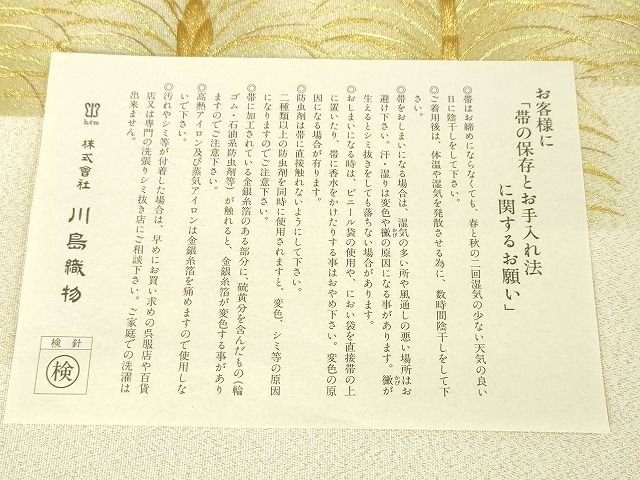 お客様に
「帯の保存とお手入れ法
に関するお願い」
◎帯はお締めにならなくても、春と秋の二回湿気の少ない天気の良い
日に陰干しをして下さい。
◎ご着用後は、体温や湿気を発散させる為に、数時間陰干しをして下
さい。
◎帯をおしまいになる場合は、湿気の多い所や風通しの悪い場所はお
避け下さい。汗・湿りは変色や黴の原因になる事があります。黴が
かび
かび
生えるとシミ抜きをしても落ちない場合があります。
◎おしまいになる時は、ビニール袋の使用や、におい袋を直接帯の上
に置いたり、帯に香水をかけたりする事はおやめ下さい。変色の原
因になる場合が有ります。
◎防虫剤は帯に直接触れないようにして下さい。
二種類以上の防虫剤を同時に使用されますと、変色、シミ等の原因
になりますのでご注意下さい。
◎帯に加工されている金銀糸箔のある部分に、硫黄分を含んだもの（輪
ゴム・石油系防虫剤等）が触れると、金銀糸箔が変色する事があり
ますのでご注意下さい。
◎高熱アイロン及び蒸気アイロンは金銀糸箔を痛めますので使用しな
いで下さい。
◎汚れやシミ等が付着した場合は、早めにお買い求めの呉服店や百貨
店又は専門の洗張りシミ抜き店にご相談下さい。ご家庭での洗濯は
出来ません。
k.t.m
株式會社 川島織物
検針
検